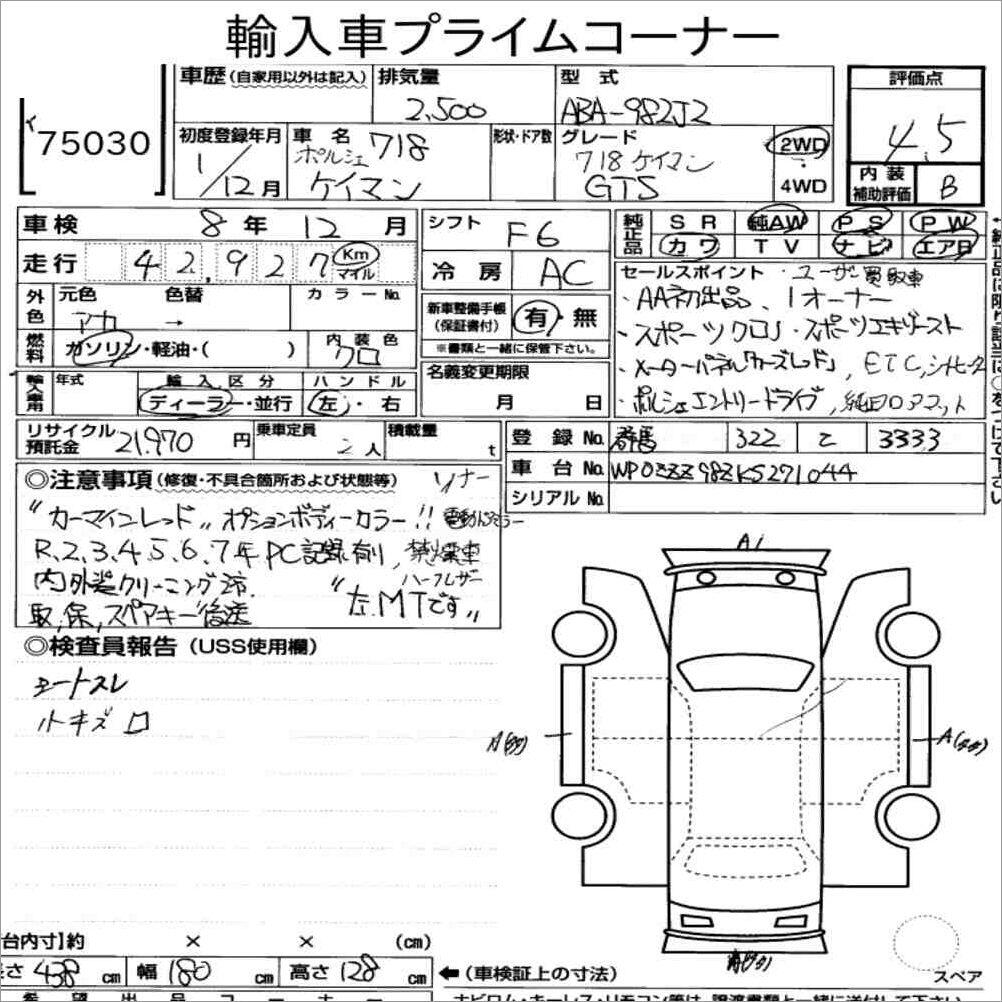 輸入車プライムコーナー
75030
車歴(自家用以外は記入) 排気量 2,500 型式 ABA-982J2 評価点 4.5
初度登録年月 1/12月 車名 ポルシェ 718 ケイマン 形状・ドア数 グレード 718ケイマン GTS 2WD・4WD
内装補助評価 B
車検 8年 12月
走行 42,927 Km マイル
シフト F6
冷房 AC
純正品 SR 純AW PS PW
カワ TV ナビ エアB
外色 元色 アカ 色替 → カラーNo.
燃料 ガソリン・軽油・( ) 内装色 クロ
新車整備手帳(保証書付) 有・無
※書類と一緒に保管下さい。
輸入車用 年式 輸入区分 ディーラー・並行 ハンドル 左・右
名義変更期限 月 日
セールスポイント・ユーザー買取車
・AA初出品、1オーナー
・スポーツクロノ・スポーツエキゾースト
・メーターパネル「カーズレッド」, ETC, シートヒーター
・ポルシェエントリードライブ, 純正フロアマット
リサイクル預託金 21,970円 乗車定員 2人 積載量 t
登録No. 群馬 322 て 3333
車台No. WP0ZZZ98ZKS271044
シリアルNo.
◎注意事項(修復・不具合箇所および状態等) ソナー
"カーマインレッド" オプションボディーカラー!! 電動ドアミラー
R.2.3.4.5.6.7年PC記録有り, 禁煙車
内外装クリーニング済. ハーフレザー
取,保,スペアキー後送 "左.MTです"
◎検査員報告(USS使用欄)
シートスレ
小キズ
A1
A
A
スペア
台内寸】約 × × (cm)
長さ 438cm 幅 180cm 高さ 128cm ←(車検証上の寸法)
希望出品コーナー